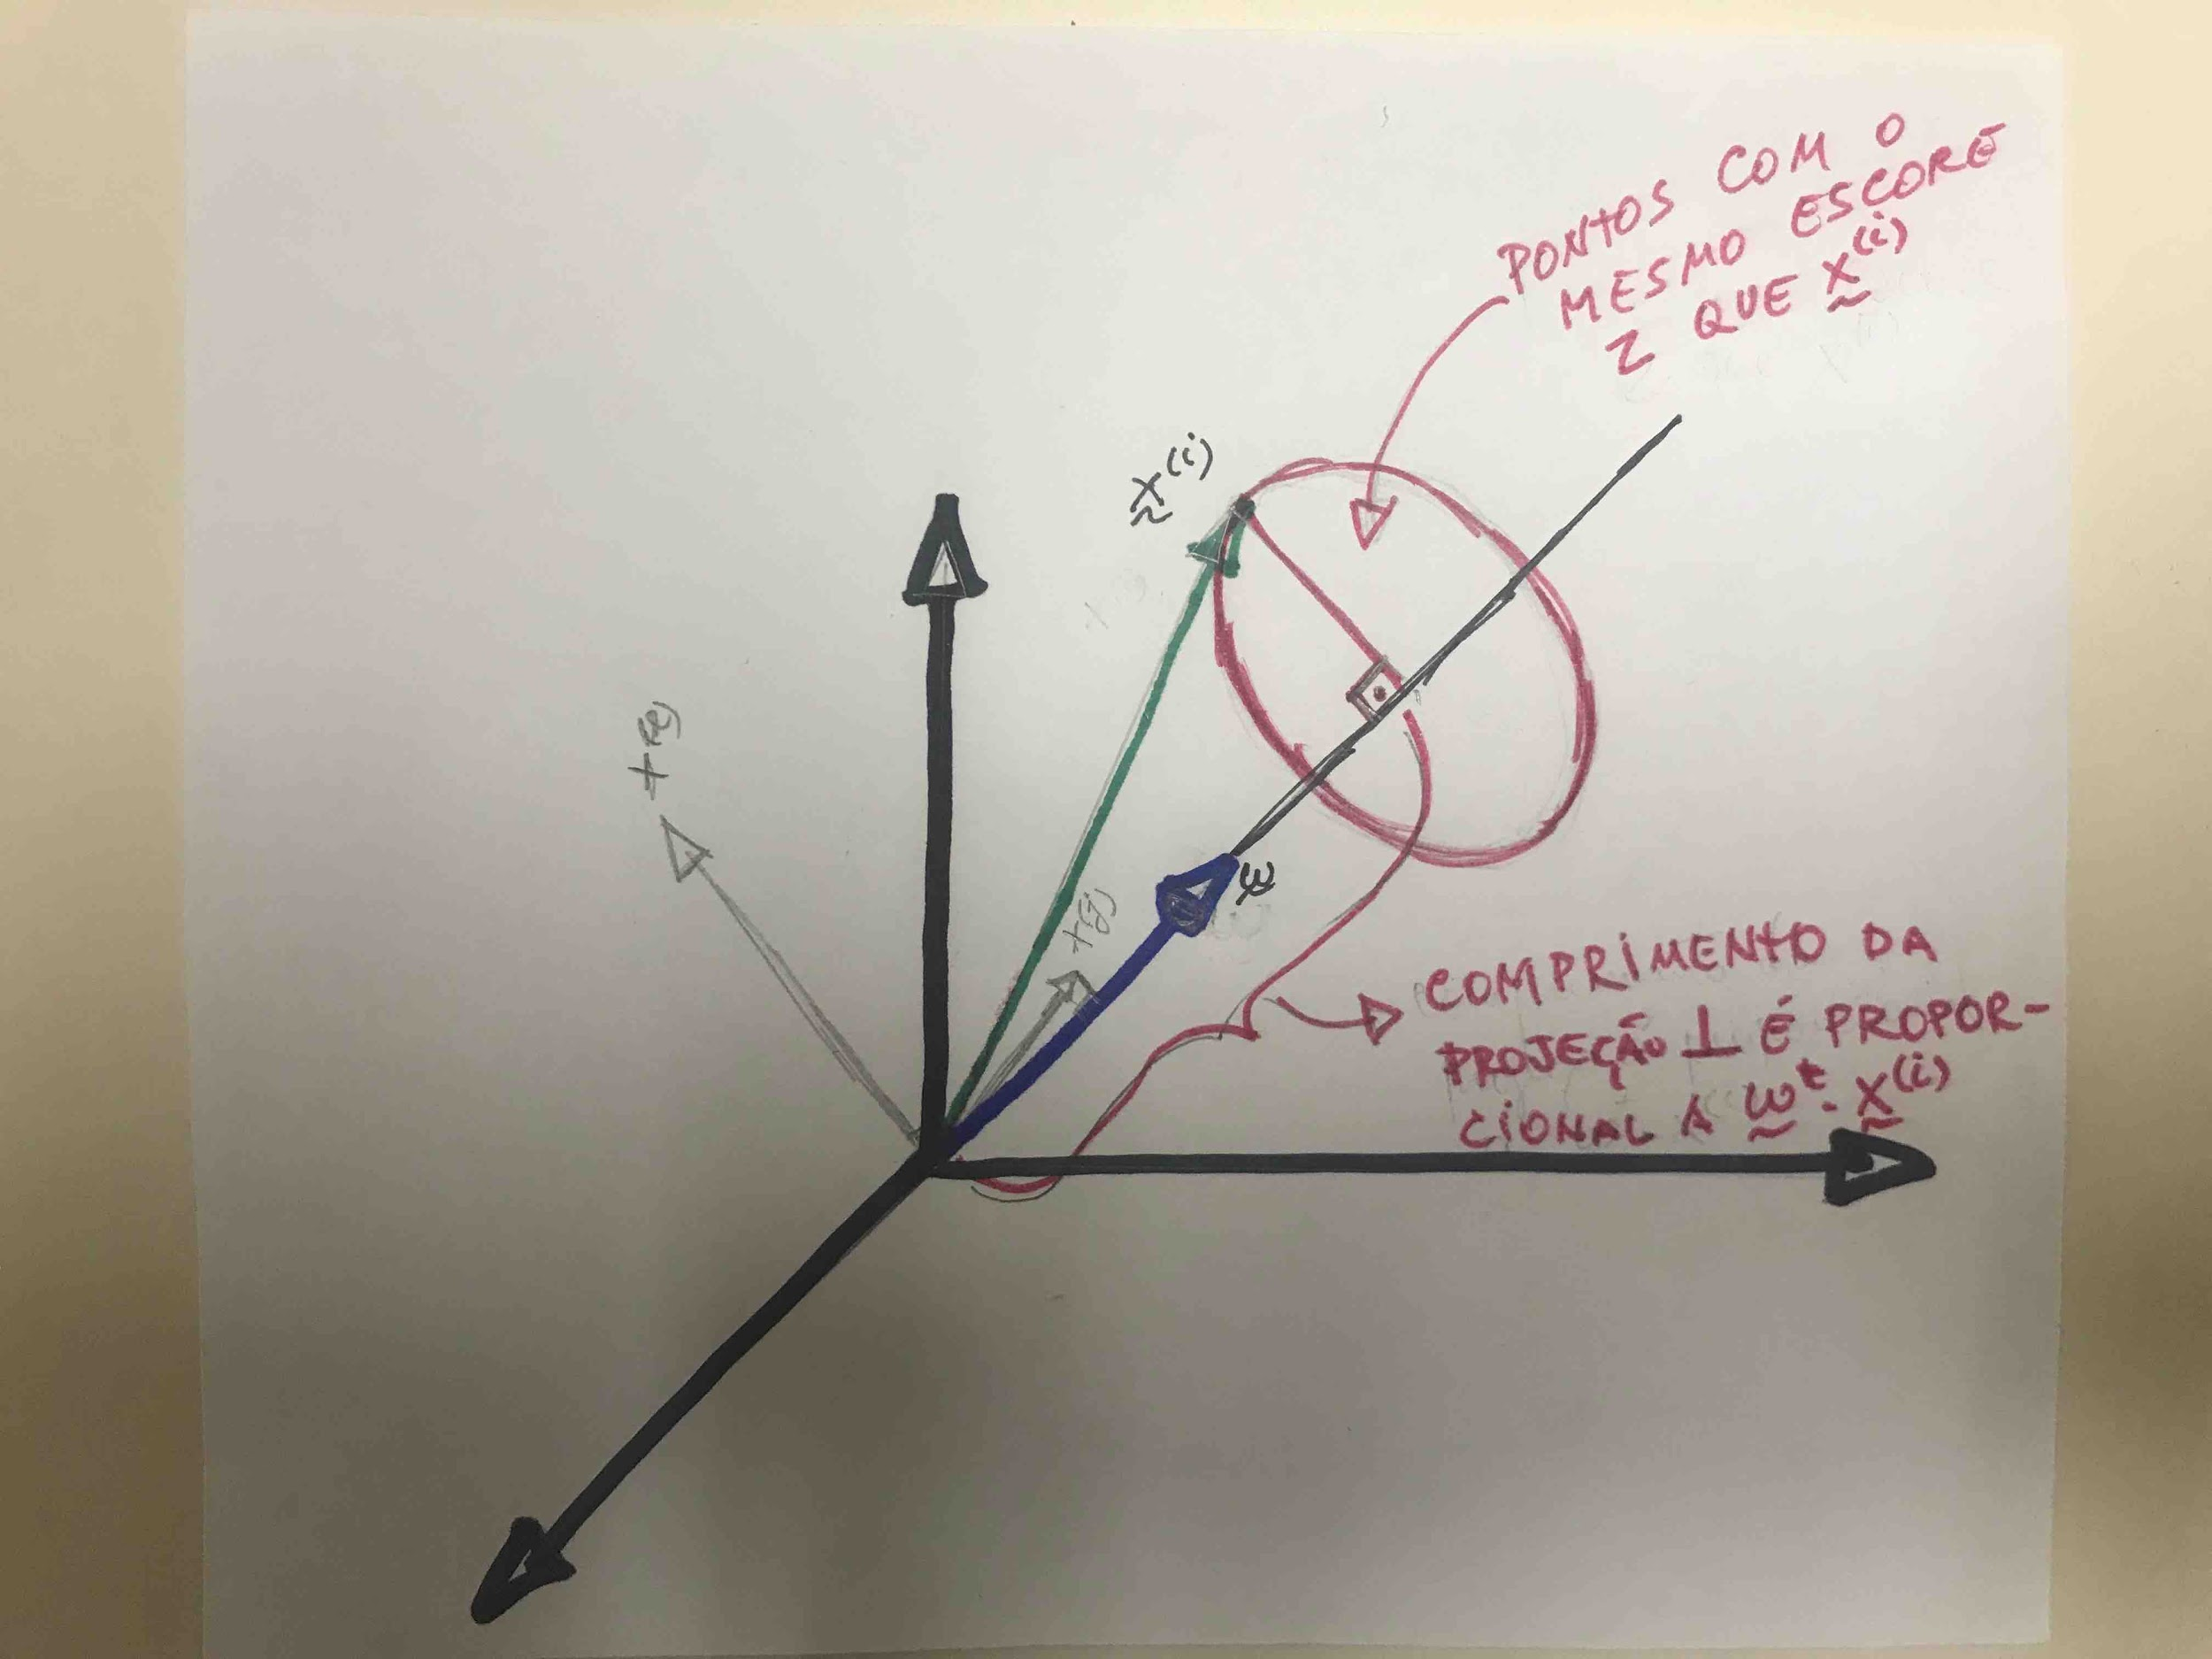 PONTOS COM O
MESMO ESCORE
Z QUE x^(i)
x^(i)
x^(l)
x^(j)
w
COMPRIMENTO DA
PROJEÇÃO ⊥ É PROPOR-
CIONAL A w^t · x^(i)